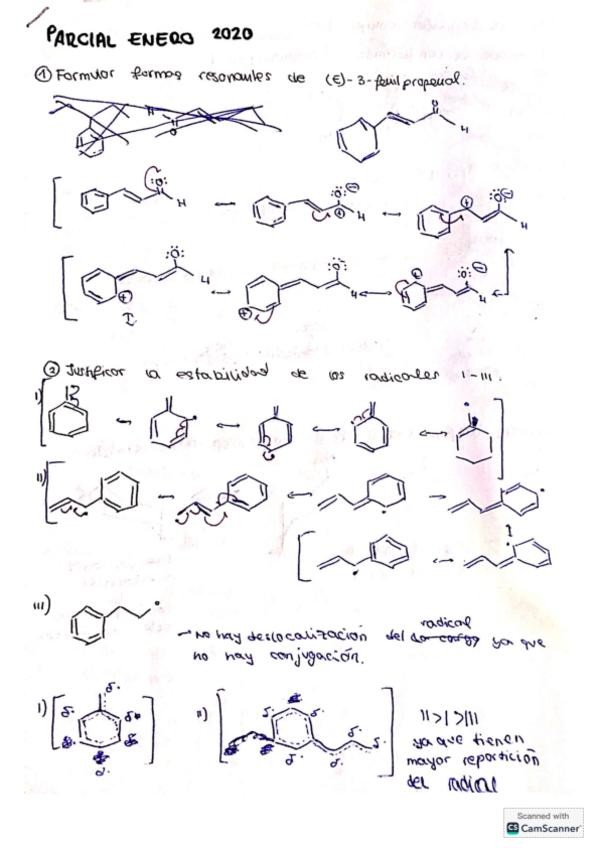 PARCIAL ENERO 2020
① Formular formas resonantes de (E)-3-fenilpropenal.
H
O
O
H
O
H
O
H
O
H
O
H
O
H
O
H
I
② Justificar la estabilidad de los radicales I-III.
I)
II)
III)
→ No hay deslocalización del radical ya que
no hay conjugación.
I)
II)
II > I > III
ya que tienen
mayor repartición
del radical
Scanned with
CS CamScanner